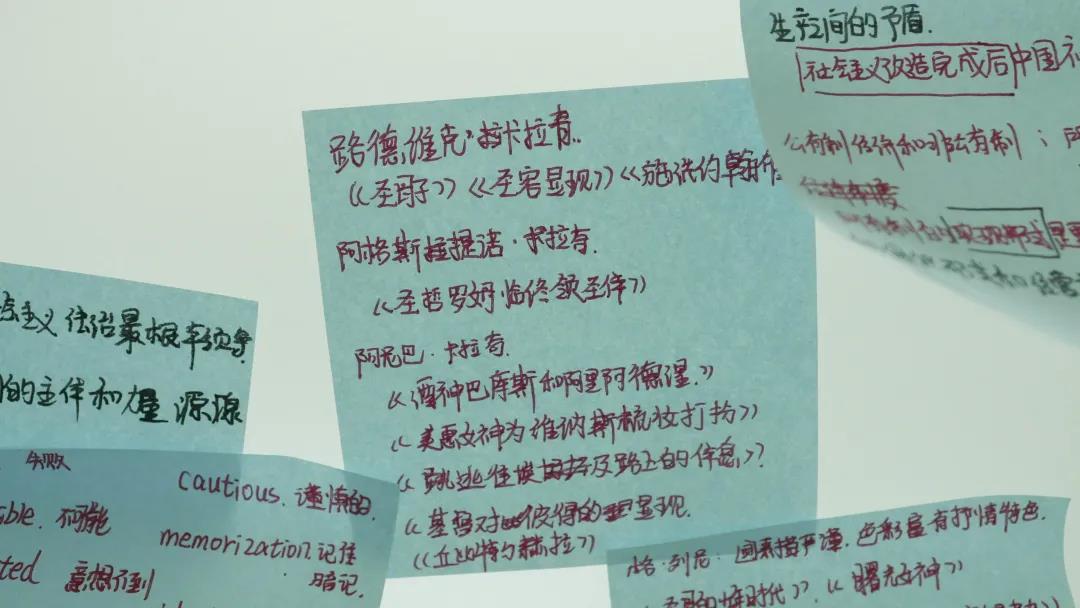 路德维克·卡拉奇.
《圣母子》《圣容显现》《施洗约翰
阿格斯提诺·卡拉奇.
《圣哲罗姆临终领圣体》
阿尼巴·卡拉奇.
《酒神巴库斯和阿里阿德涅.》
《美惠女神为维纳斯梳妆打扮》
《跳逃往埃及路上的休息》
《基督对彼得的显现.
《丘比特与赫拉》
生产之间的矛盾.
社会主义改造完成后中国社
公有制经济和非公有制；
会主义法治最根本领导
的主体和力量源源
失败
ible. 不可能
ted 意想不到
cautious. 谨慎的.
memorization. 记住
暗记.
格·列尼: 画系精严谨. 色彩富有抒情特色.
时代》.《曙光女神》